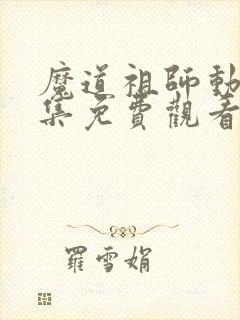 魔道祖師動
集免費觀看
羅雪娟